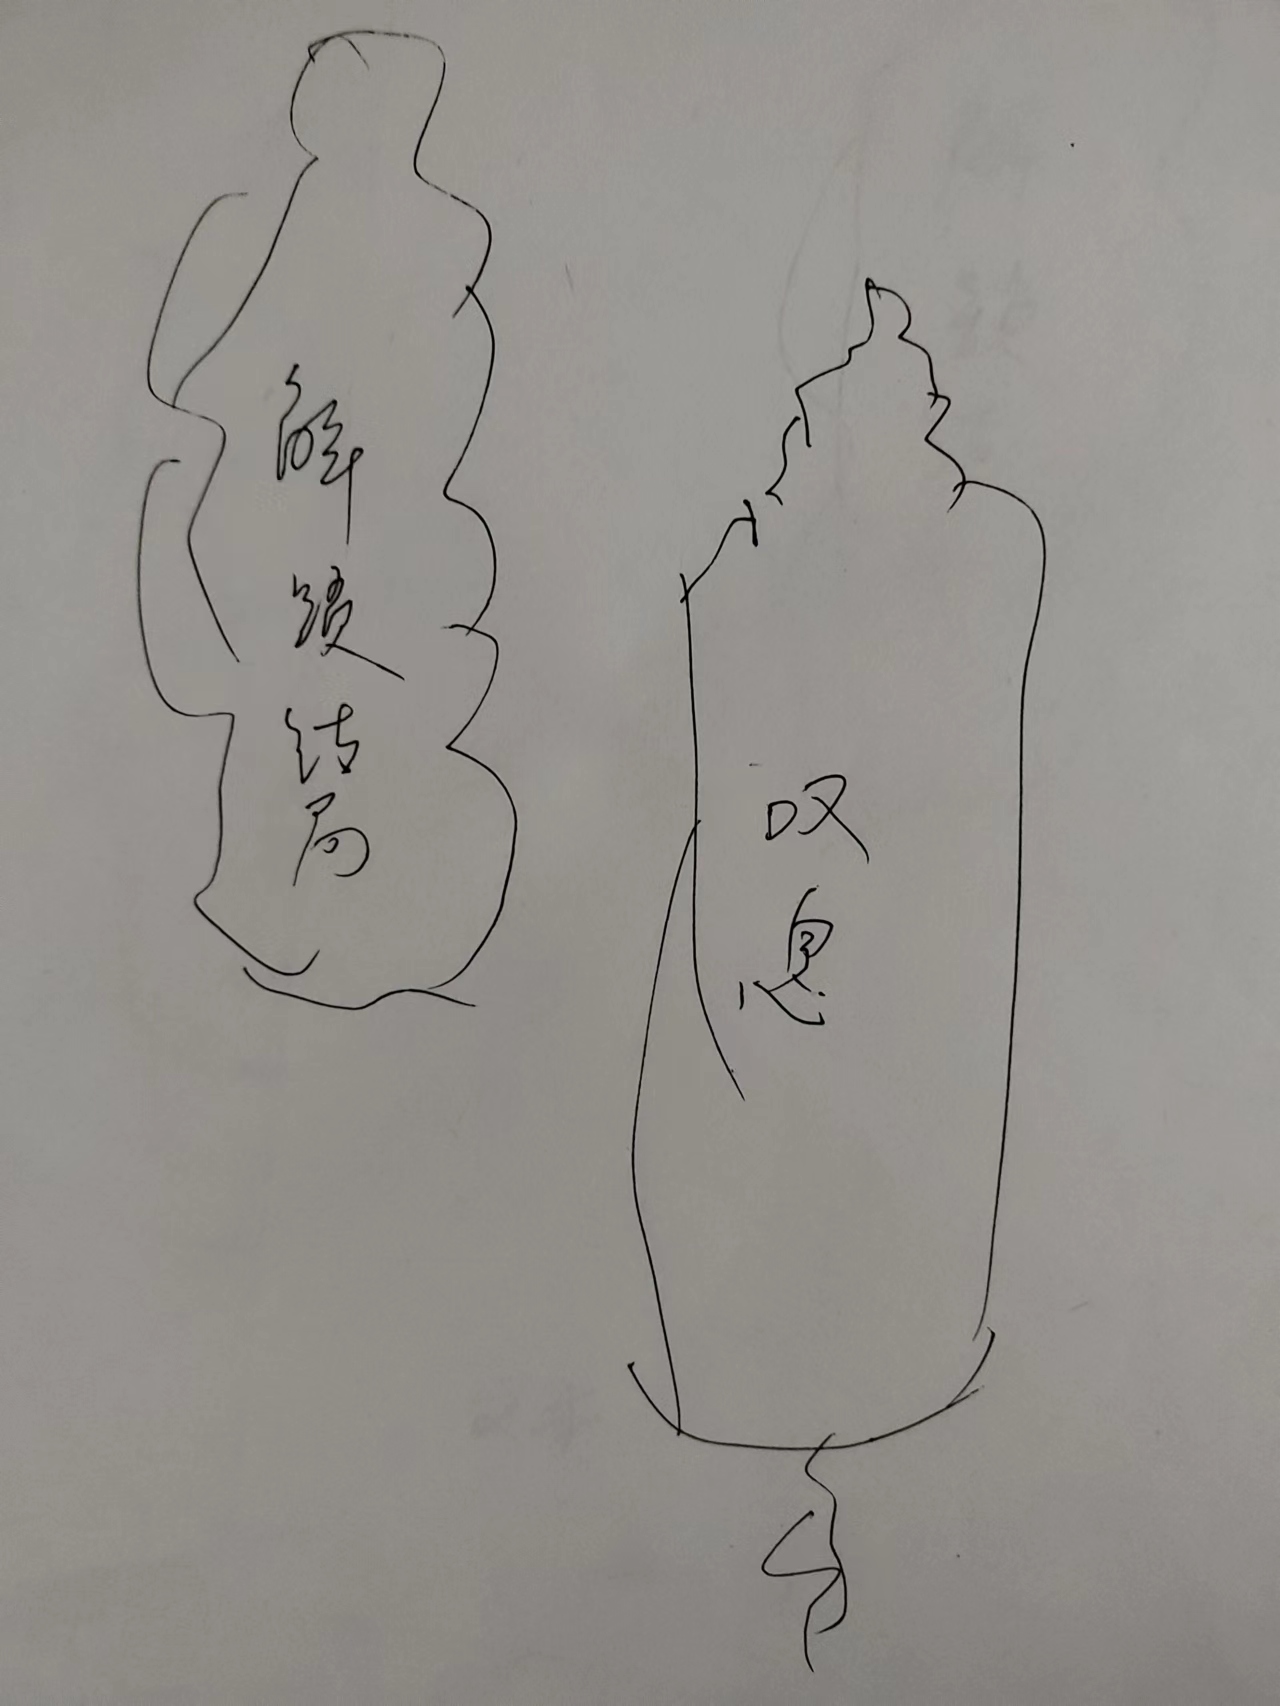 解馈结局
叹息